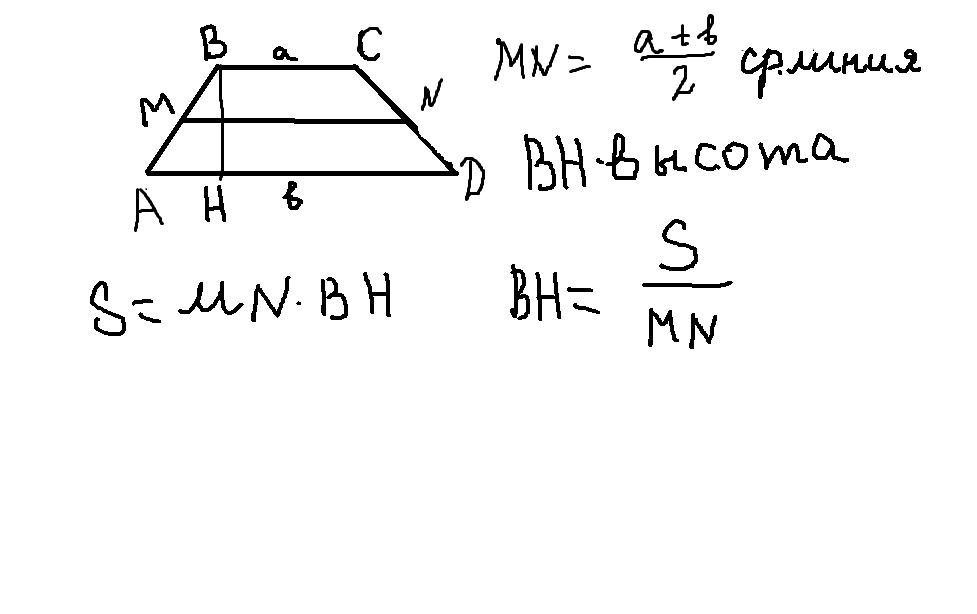 B a C
M N
A H в D
MN = a + в / 2 ср.линия
BH - высота
S = MN · BH
BH = S / MN